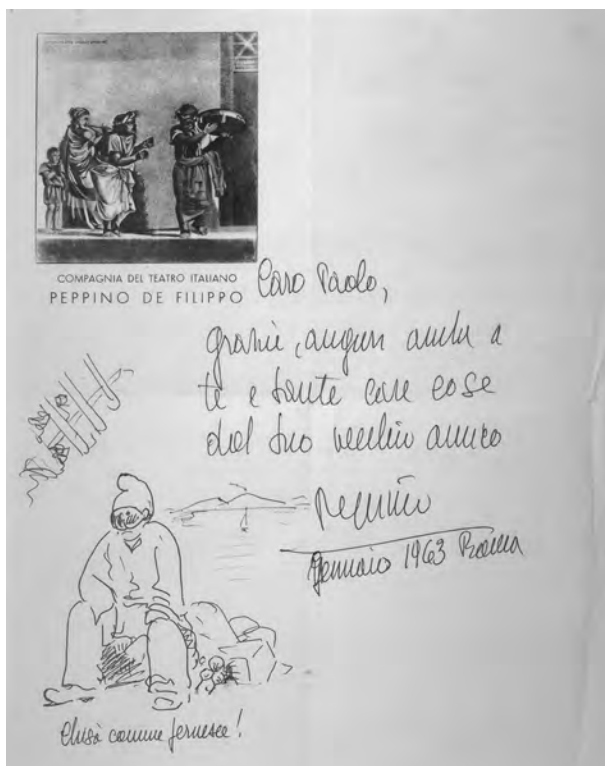 COMPAGNIA DEL TEATRO ITALIANO
PEPPINO DE FILIPPO
Caro Paolo,
grazie, auguri anche a
te e tante care cose
dal tuo vecchio amico
Peppino
Gennaio 1963 Roma
Chisà comme fernesce!